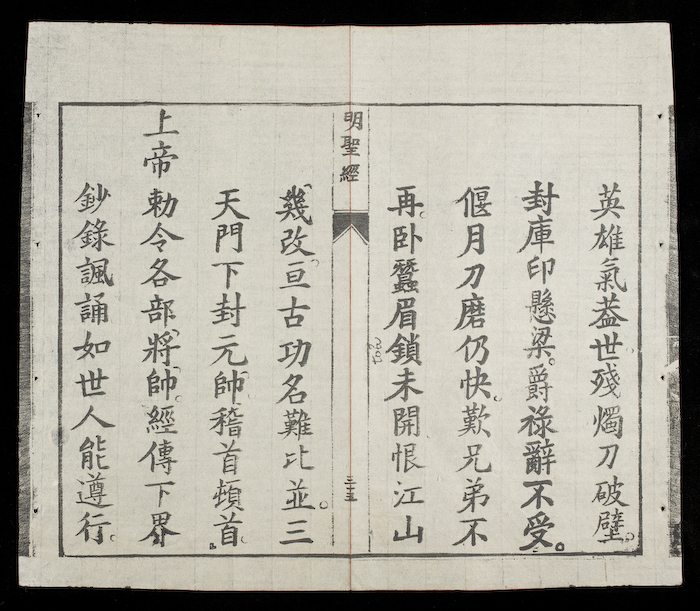 英雄氣葢世殘燭刀破壁。
封庫印懸梁。爵祿辭不受。
偃月刀磨仍快歎兄弟不
再。卧蠶眉鎖未開恨江山
明聖經
三十五
幾改亘古功名難比並。三
天門下封元帥稽首頓首。
上帝勅令各部將帥。經傳下界
鈔錄諷誦如世人能遵行。